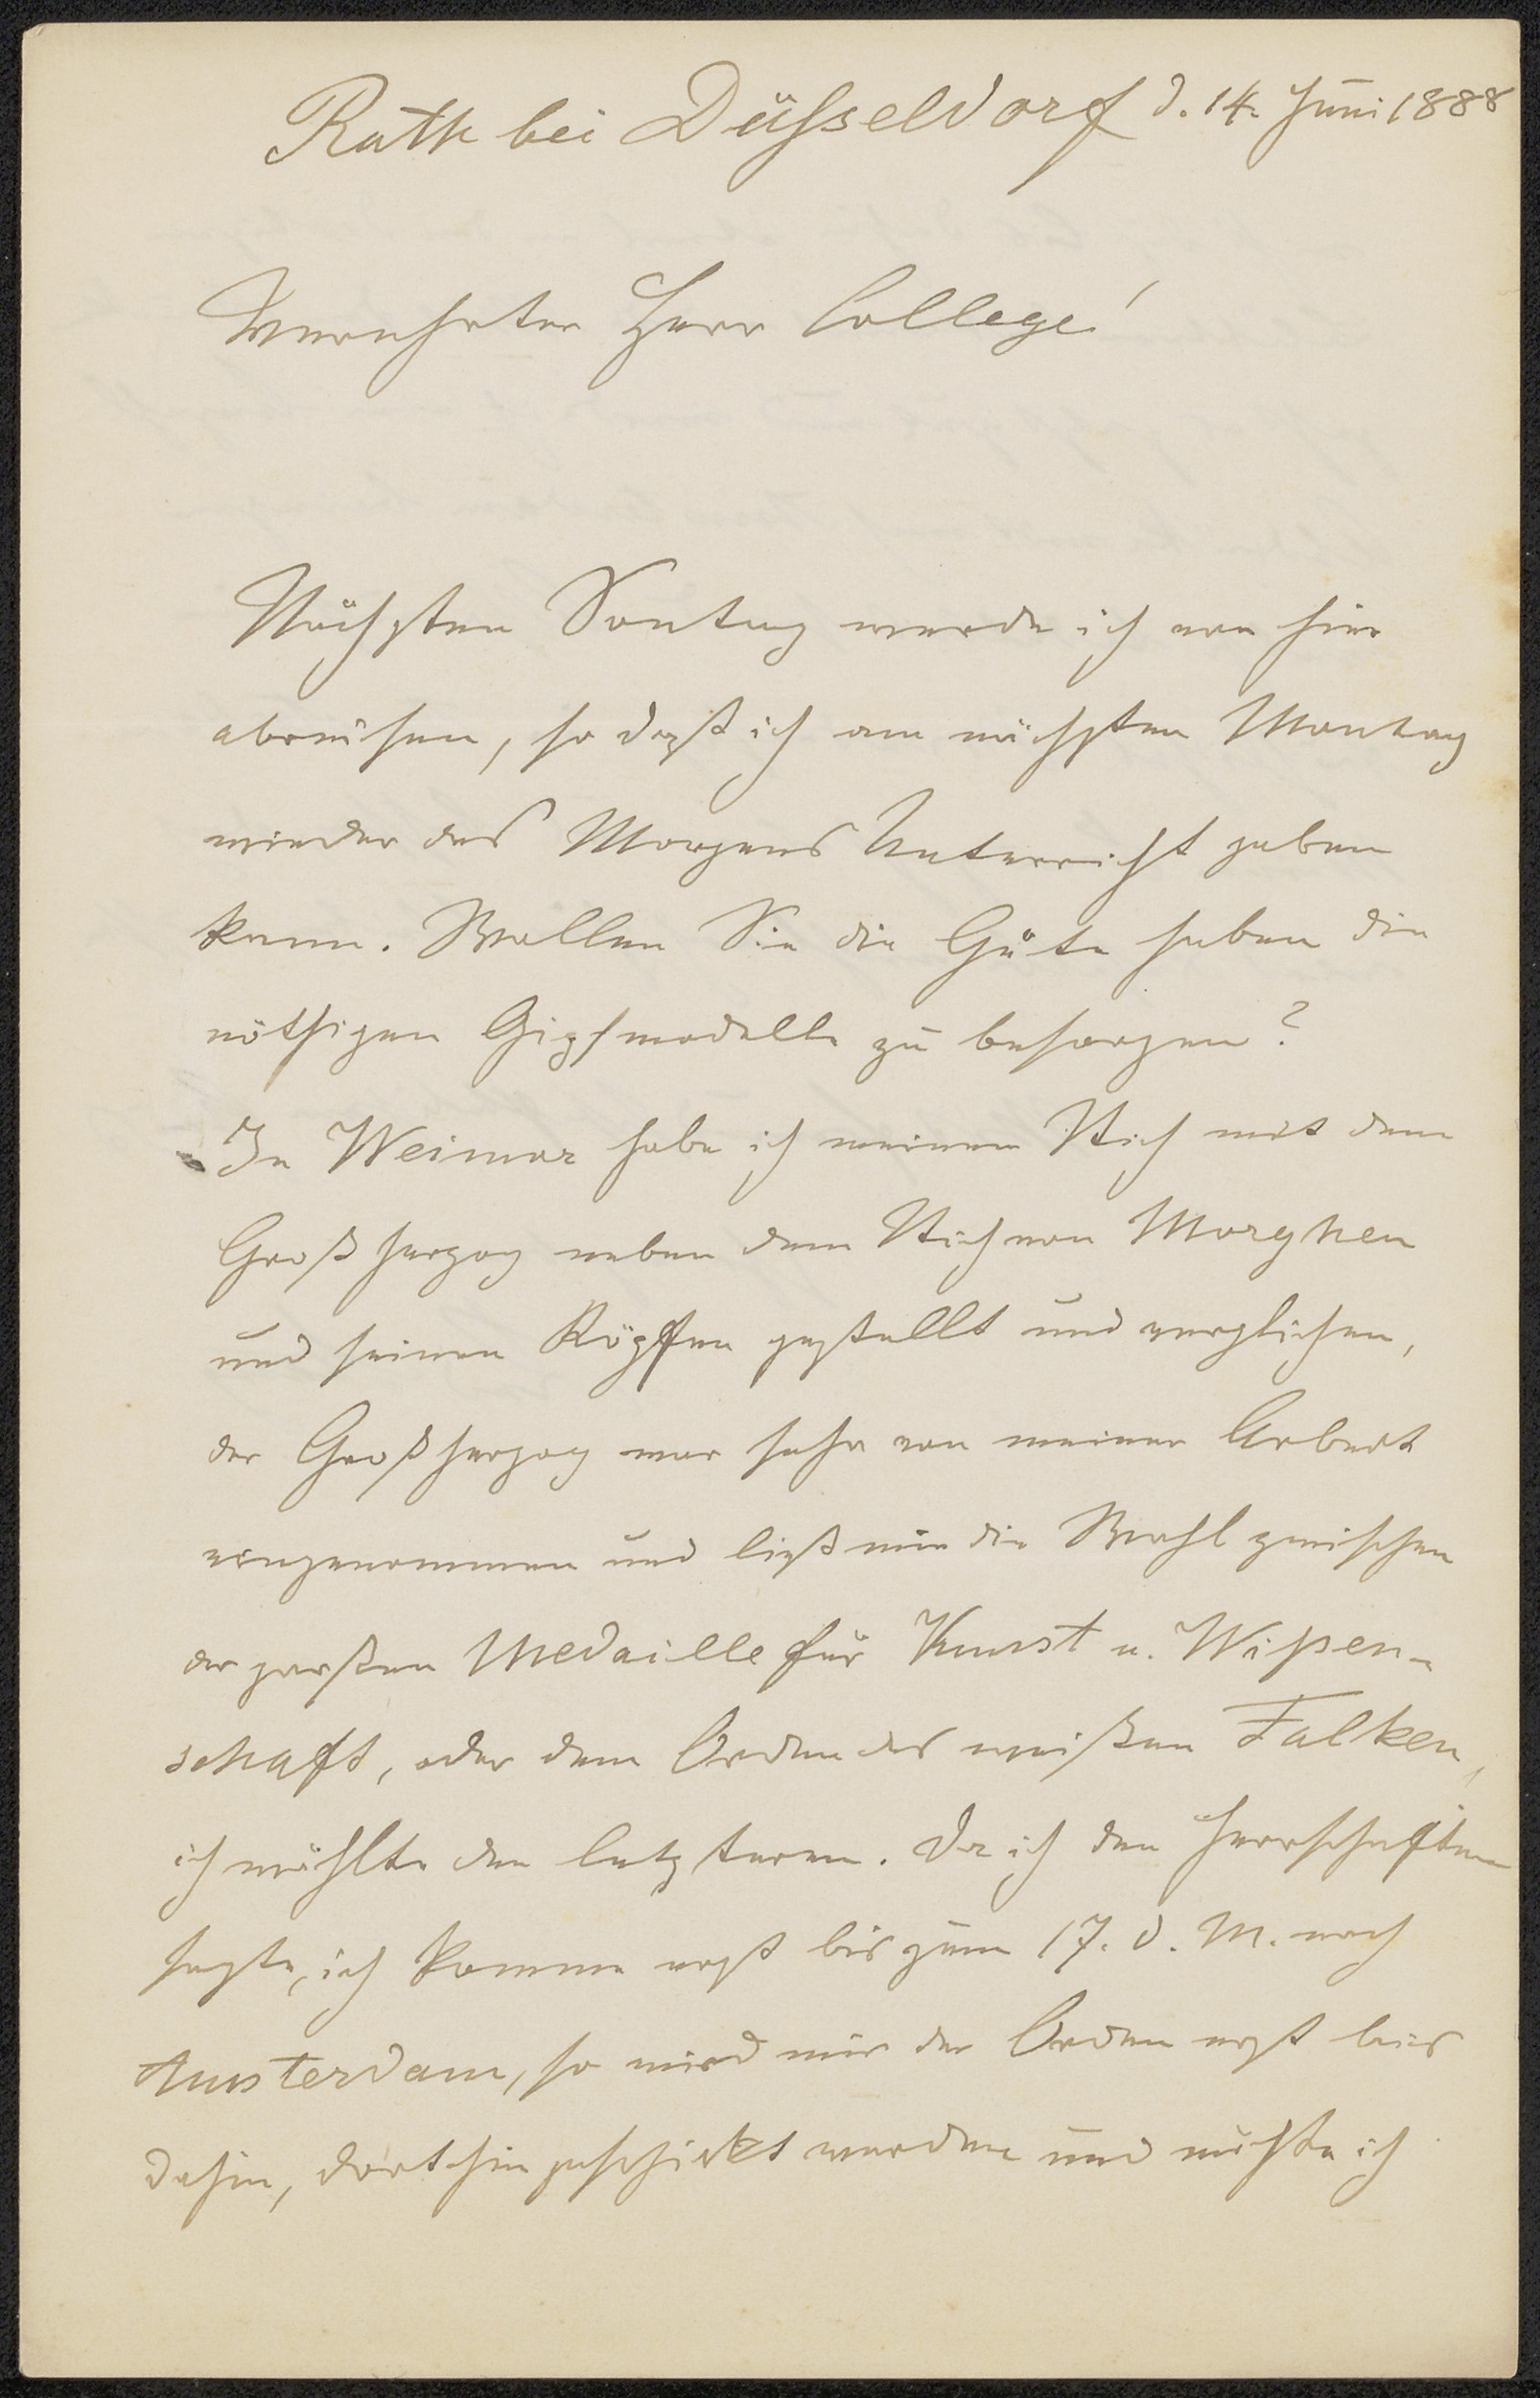 Rath bei Düsseldorf d. 14. Juni 1888
Verehrter Herr College!
Nächsten Sontag werde ich von hier
abreisen, so daß ich am nächsten Montag
wieder des Morgens Unterricht geben
kann. Wollen Sie die Güte haben die
nöthigen Gipsmodelle zu besorgen?
In Weimar habe ich meinen Stich mit dem
Großherzog neben dem Stich von Morghen
und seinen Köpfen gestellt und verglichen,
der Großherzog war sehr von meiner Arbeit
eingenommen und ließ mir die Wahl zwischen
der großen Medaille für Kunst u. Wissen-
schaft, oder dem Orden des weißen Falken,
ich wählte den letzteren. Da ich den Herrschaften
sagte, ich komme erst bis zum 17. d. M. nach
Amsterdam, so wird mir der Orden erst bis
dahin, dorthin geschickt werden und müßte ich